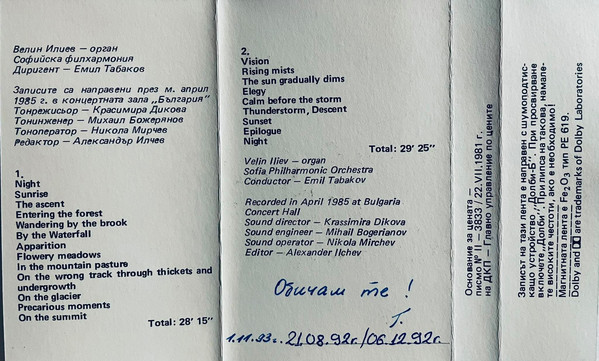 Велин Илиев — орган
Софийска филхармония
Диригент — Емил Табаков
Записите са направени през м. април
1985 г. в концертната зала „България”
Тонрежисьор — Красимира Дикова
Тонинженер — Михаил Божерянов
Тоноператор — Никола Мирчев
Редактор — Александър Илчев
1.
Night
Sunrise
The ascent
Entering the forest
Wandering by the brook
By the Waterfall
Apparition
Flowery meadows
In the mountain pasture
On the wrong track through thickets and
undergrowth
On the glacier
Precarious moments
On the summit
Total: 28' 15"
2.
Vision
Rising mists
The sun gradually dims
Elegy
Calm before the storm
Thunderstorm, Descent
Sunset
Epilogue
Night
Total: 29' 25"
Velin Iliev — organ
Sofia Philharmonic Orchestra
Conductor — Emil Tabakov
Recorded in April 1985 at Bulgaria
Concert Hall
Sound director — Krassimira Dikova
Sound engineer — Mihail Bogerianov
Sound operator — Nikola Mirchev
Editor — Alexander Ilchev
Обичам те!
Г.
1.11.93г. 21.08.92г./06.12.92г.
Основание за цената —
писмо № II — 5833 / 22.VII.1981 г.
на ДКП — Главно управление по цените
Записът на тази лента е направен с шумоподтис-
кащо устройство „Долби-Б”. При просвирване
включете „Долби”. При липса на такова, намале-
те високите честоти, ако е необходимо!
Магнитната лента е Fe2O3 тип PE 619.
Dolby and are trademarks of Dolby Laboratories